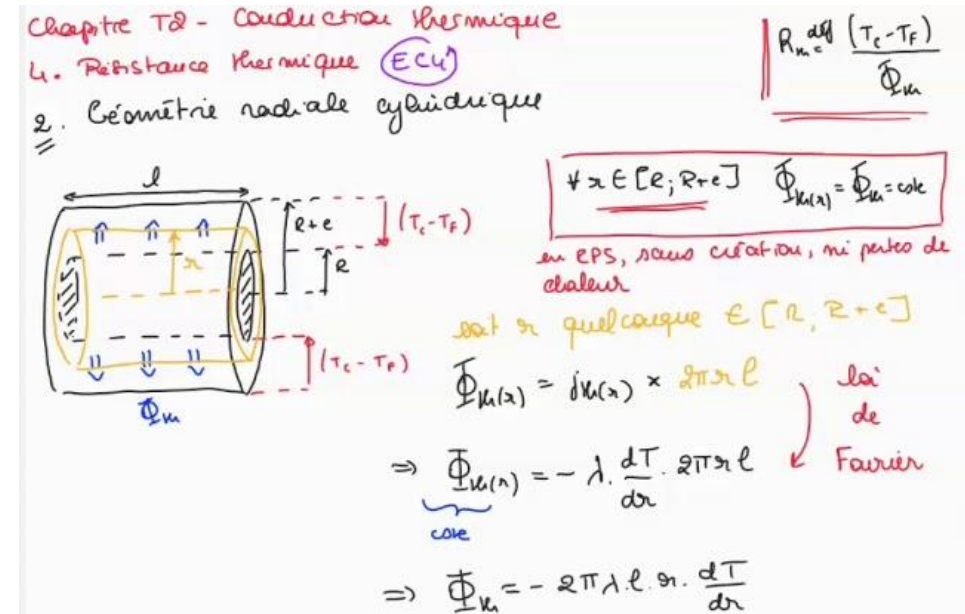 Chapitre T2 - Conduction thermique
4. Résistance thermique (EC4)
2. Géométrie radiale cylindrique
R_th =^déf (T_c - T_F) / Φ_th
l
R+e
R
r
(T_c - T_F)
(T_c - T_F)
Φ_th
∀ r ∈ [R; R+e] Φ_th(r) = Φ_th = cste
en RPS, sans création, ni pertes de
chaleur
soit r quelconque ∈ [R, R+e]
Φ_th(r) = j_th(r) × 2πrl
loi
de
Fourier
⇒ Φ_th(r) = - λ. dT/dr . 2πrl
cste
⇒ Φ_th = - 2πλ.l.r. dT/dr